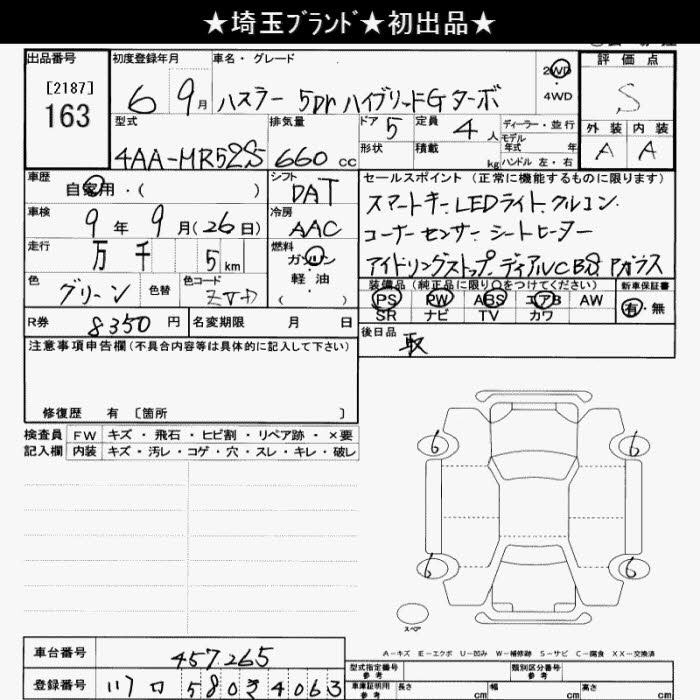 ★埼玉ﾌﾞﾗﾝﾄﾞ★初出品★
出品番号
[2187]
163
初度登録年月
6 9月
車名・グレード
ハスラー 5Dr ハイブリッドG ターボ
2WD
・
4WD
評価点
S
外装 内装
A A
型式
4AA-MR52S
排気量
660 cc
ドア
5
定員
4人
ディーラー・並行
モデル
年式 年
形状
積載
kg
ハンドル 左・右
車歴
自家用・( )
シフト
DAT
車検
9年 9月(26日)
冷房
AAC
走行
万 千 5km
燃料
ガソリン
・
軽油
( )
色
グリーン
色替
色コード
R券
8350円
名変期限 月 日
セールスポイント (正常に機能するものに限ります)
スマートキー. LEDライト. クルコン.
コーナーセンサー. シートヒーター
アイドリングストップ. デュアルCBS Pガラス
装備品 (純正品に限り○をつけてください)
PS PW ABS エアB AW
SR ナビ TV カワ
新車保証書
有・無
後日品
取
注意事項申告欄(不具合内容等は具体的に記入して下さい)
修復歴 有 〔箇所 〕
検査員
記入欄
FW キズ・飛石・ヒビ割・リペア跡・×要
内装 キズ・汚レ・コゲ・穴・スレ・キレ・破レ
6 6
6 6
スペア
A-キズ E-エクボ U-凹み W-補修跡 S-サビ C-腐食 XX-交換済
車台番号
457265
登録番号
川口 580 き 4063
型式指定番号
参考
類別区分番号
参考
車庫証明用
参考
長さ cm
幅 cm
高さ cm